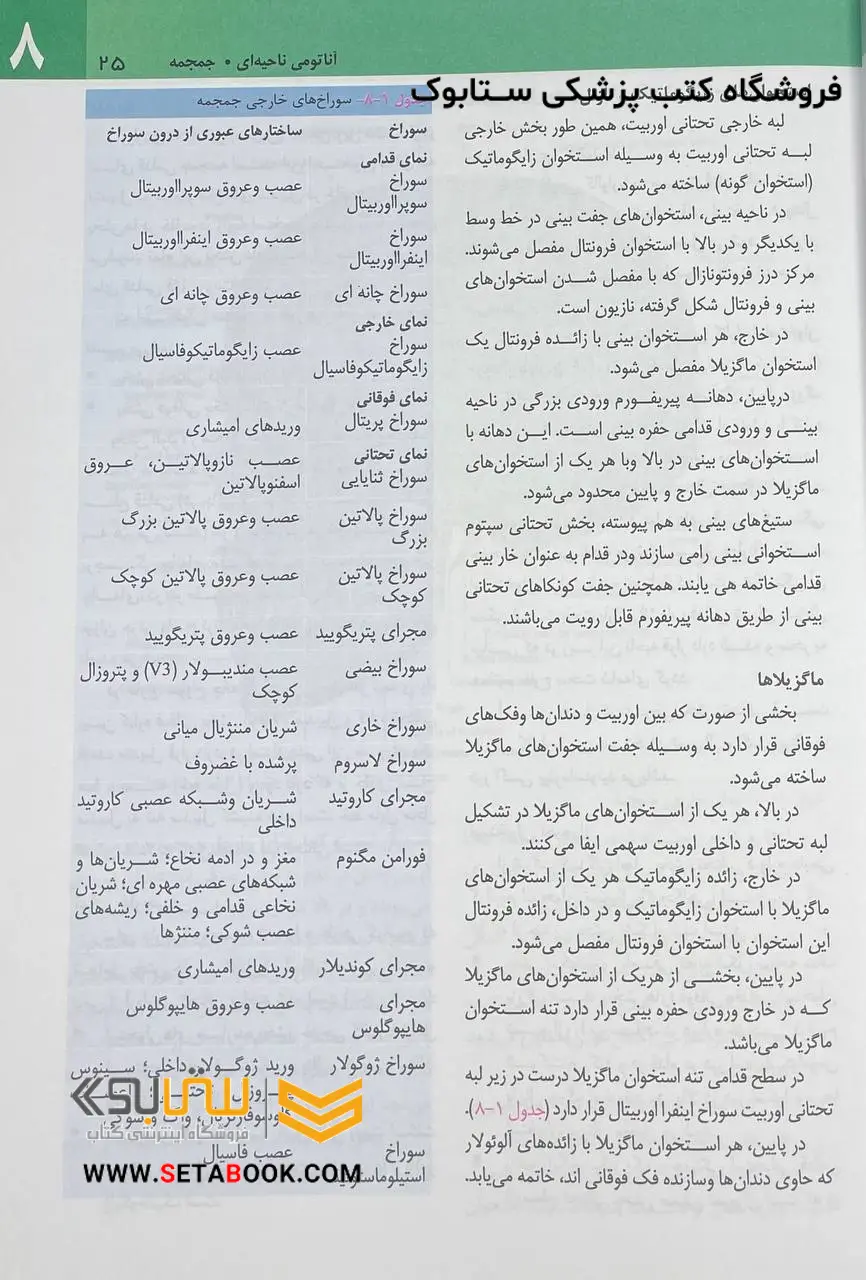 ۸
۲۵
آناتومی ناحیه‌ای • جمجمه
فروشگاه کتب پزشکی ستابوک
لبه خارجی تحتانی اوربیت، همین طور بخش خارجی
لبه تحتانی اوربیت به وسیله استخوان زایگوماتیک
(استخوان گونه) ساخته می‌شود.
در ناحیه بینی، استخوان‌های جفت بینی در خط وسط
با یکدیگر و در بالا با استخوان فرونتال مفصل می‌شوند.
مرکز درز فرونتونازال که با مفصل شدن استخوان‌های
بینی و فرونتال شکل گرفته، نازیون است.
در خارج، هر استخوان بینی با زائده فرونتال یک
استخوان ماگزیلا مفصل می‌شود.
درپایین، دهانه پیریفورم ورودی بزرگی در ناحیه
بینی و ورودی قدامی حفره بینی است. این دهانه با
استخوان‌های بینی در بالا وبا هر یک از استخوان‌های
ماگزیلا در سمت خارج و پایین محدود می‌شود.
ستیغ‌های بینی به هم پیوسته، بخش تحتانی سپتوم
استخوانی بینی رامی سازند ودر قدام به عنوان خار بینی
قدامی خاتمه می یابند. همچنین جفت کونکاهای تحتانی
بینی از طریق دهانه پیریفورم قابل رویت می‌باشند.
ماگزیلاها
بخشی از صورت که بین اوربیت و دندان‌ها وفک‌های
فوقانی قرار دارد به وسیله جفت استخوان‌های ماگزیلا
ساخته می‌شود.
در بالا، هر یک از استخوان‌های ماگزیلا در تشکیل
لبه تحتانی و داخلی اوربیت سهمی ایفا می‌کنند.
در خارج، زائده زایگوماتیک هر یک از استخوان‌های
ماگزیلا با استخوان زایگوماتیک و در داخل، زائده فرونتال
این استخوان با استخوان فرونتال مفصل می‌شود.
در پایین، بخشی از هریک از استخوان‌های ماگزیلا
که در خارج ورودی حفره بینی قرار دارد تنه استخوان
ماگزیلا می‌باشد.
در سطح قدامی تنه استخوان ماگزیلا درست در زیر لبه
تحتانی اوربیت سوراخ اینفرا اوربیتال قرار دارد (جدول ۱-۸).
در پایین، هر استخوان ماگزیلا با زائده‌های آلوئولار
که حاوی دندان‌ها وسازنده فک فوقانی اند، خاتمه می‌یابد.
جدول ۱-۸- سوراخ‌های خارجی جمجمه
سوراخ ساختارهای عبوری از درون سوراخ
نمای قدامی
سوراخ عصب وعروق سوپرااوربیتال
سوپرااوربیتال
سوراخ عصب وعروق اینفرااوربیتال
اینفرااوربیتال
سوراخ چانه ای عصب وعروق چانه ای
نمای خارجی
سوراخ عصب زایگوماتیکوفاسیال
زایگوماتیکوفاسیال
نمای فوقانی
سوراخ پریتال وریدهای امیشاری
نمای تحتانی عصب نازوپالاتین، عروق
سوراخ ثنایایی اسفنوپالاتین
سوراخ پالاتین عصب وعروق پالاتین بزرگ
بزرگ
سوراخ پالاتین عصب وعروق پالاتین کوچک
کوچک
مجرای پتریگویید عصب وعروق پتریگویید
سوراخ بیضی عصب مندیبولار (V3) و پتروزال
کوچک
سوراخ خاری شریان مننژیال میانی
سوراخ لاسروم پرشده با غضروف
مجرای کاروتید شریان وشبکه عصبی کاروتید
داخلی
فورامن مگنوم مغز و در ادمه نخاع؛ شریان‌ها و
شبکه‌های عصبی مهره ای؛ شریان
نخاعی قدامی و خلفی؛ ریشه‌های
عصب شوکی؛ مننژها
مجرای کوندیلار وریدهای امیشاری
مجرای عصب وعروق هایپوگلوس
هایپوگلوس
سوراخ ژوگولار ورید ژوگولار داخلی؛ سینوس
سوراخ عصب فاسیال
استیلوماستویید
ستابوک
فروشگاه اینترنتی کتاب
WWW.SETABOOK.COM